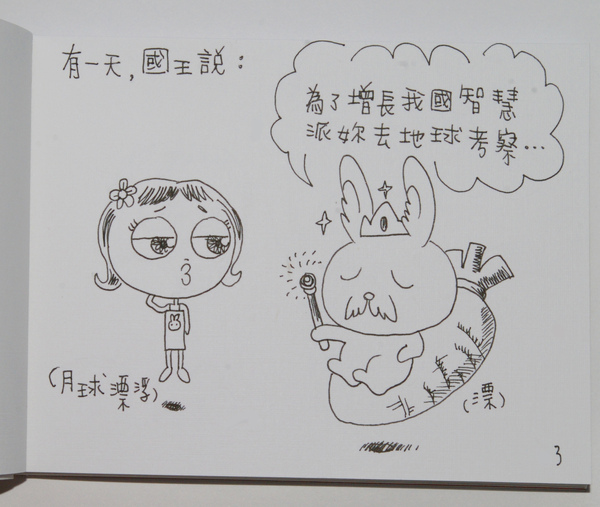 有一天，國王說：
為了增長我國智慧
派妳去地球考察...
(月球漂浮)
(漂)
3